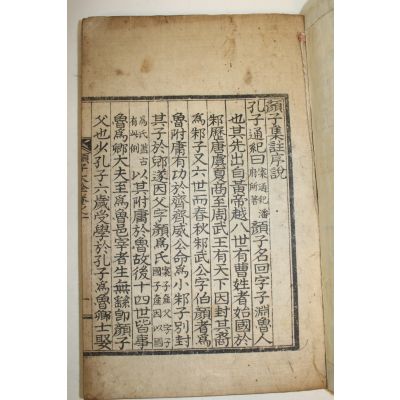 顔子集註序說
孔子通紀曰案通紀潘府所著顔子名回字子淵魯人
也其先出自黃帝越八世有曹姓者始國於
邾歷唐虞夏商至周武王有天下因封其裔
爲邾子又六世而春秋邾武公字伯顔者爲
魯附庸有功於齊齊威公命爲小邾子別封
其子於郳遂因父字顔爲氏案子産父字子國子産因以國
爲氏蓋古有此例以其附庸於魯故後十四世皆事
魯爲卿大夫至爲魯邑宰者生無繇卽顔子
父也少孔子六歲受學於孔子爲魯卿士娶
顔子